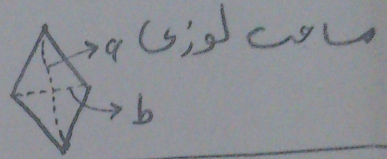 مساحت لوزی
a
b